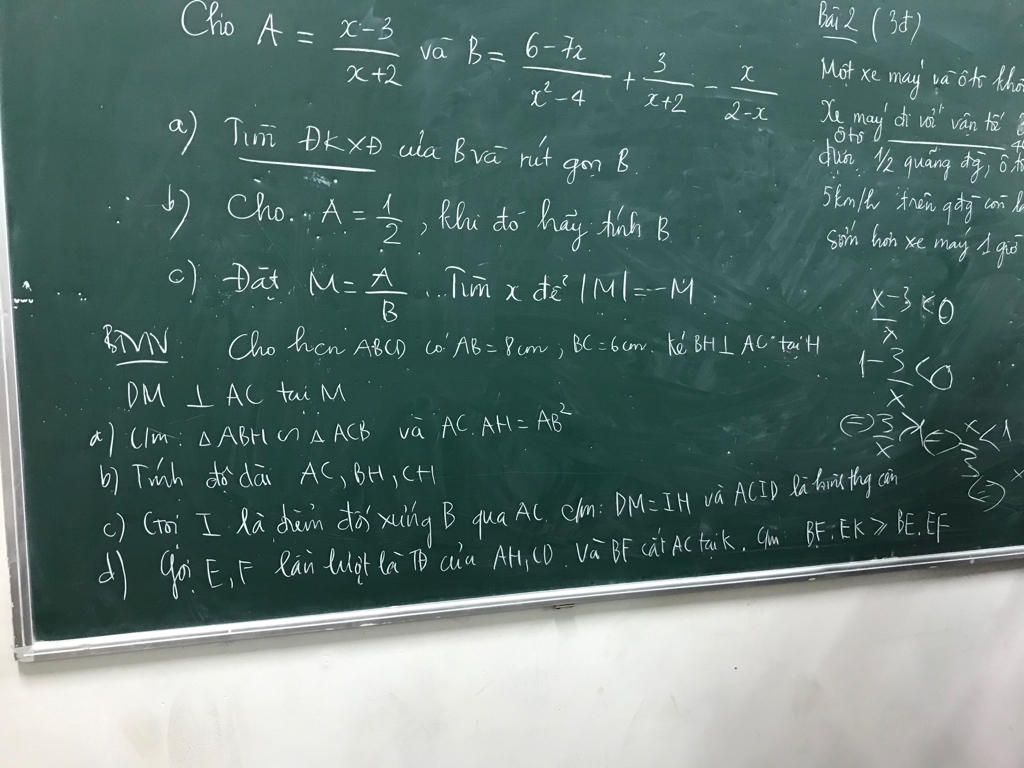 Cho A = (x-3)/(x+2) và B = (6-7x)/(x²-4) + 3/(x+2) - x/(2-x)
a) Tìm ĐKXĐ của B và rút gọn B.
b) Cho A = 1/2, khi đó hãy tính B
c) Đặt M = A/B. Tìm x để |M| = -M
BTVN Cho hcn ABCD có AB = 8cm, BC = 6cm, kẻ BH ⊥ AC tại H
DM ⊥ AC tại M
a) C/m: △ABH ∽ △ACB và AC.AH = AB²
b) Tính độ dài AC, BH, CH
c) Gọi I là điểm đối xứng B qua AC. c/m: DM = IH và ACID là hình thg cân
d) Gọi E, F lần lượt là TĐ của AH, CD và BF cắt AC tại K. Cm BF.EK ≥ BE.EF
Bài 2 (3đ)
Một xe máy và ôtô
Xe máy đi với vận tốc
Ôtô
được 1/2 quãng đg, ô
5km/h trên qđg còn
sớm hơn xe máy 1 giờ
(x-3)/x < 0
1 - 3/x < 0
⇔ 3/x > 1 ⇔ x/3 < 1
⇔ x